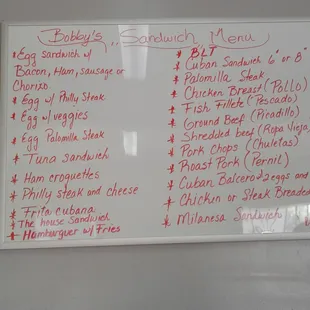 Bobby's ,, Sandwich Menu
* Egg sandwich w/
Bacon, Ham, sausage or
Chorizo
* Egg w/ Philly Steak
* Egg w/ veggies
* Egg Palomilla Steak
* Tuna sandwich
* Ham croquettes
* Philly steak and cheese
* Frita cubana
* The house Sandwich
* Hamburguer w/ Fries
* BLT
* Cuban Sandwich 6" or 8"
* Palomilla Steak
* Chicken Breast (Pollo)
* Fish Fillete (Pescado)
* Ground Beef (Picadillo)
* Shredded beef (Ropa Vieja)
* Pork Chops (Chuletas)
* Roast Pork (Pernil)
* Cuban, Balcero + 2 eggs and
* Chicken or Steak Breaded
* Milanesa Sandwich